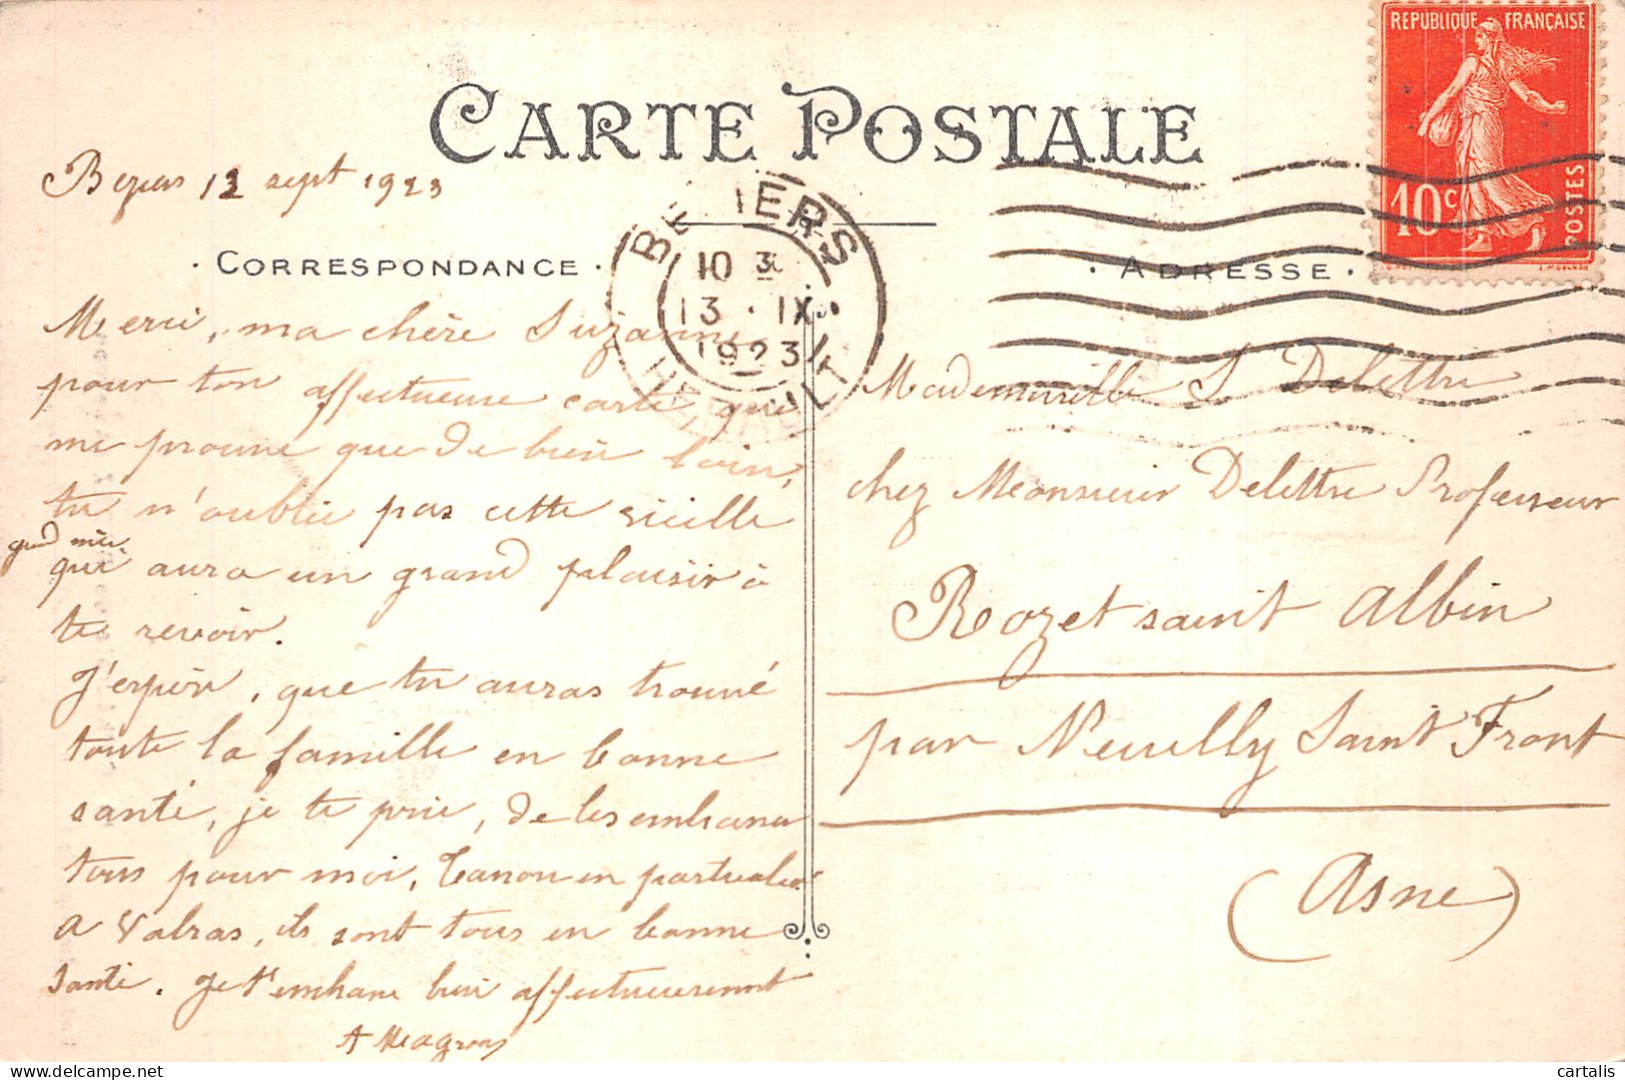 CARTE POSTALE
REPUBLIQUE FRANÇAISE
10c
POSTES
12 sept 1923
BEZIERS
10 30
13 · IX
1923
HERAULT
· CORRESPONDANCE ·
· ADRESSE ·
Merci, ma chère Suzanne
pour ton affectueuse carte, qui
me prouve que de bien loin,
tu n'oublie pas cette vieille
grand mère
qui aura un grand plaisir à
te revoir.
J'espère, que tu auras trouvé
toute la famille en bonne
santé, je te prie, de les embrasser
tous pour moi, en particulier
A Valras, ils sont tous en bonne
santé. Je t'embrasse bien affectueusement
A Magrous
Mademoiselle S Delettre
chez Monsieur Delettre Professeur
Rozet saint Albin
par Neuilly Saint Front
(Asne)
cartalis